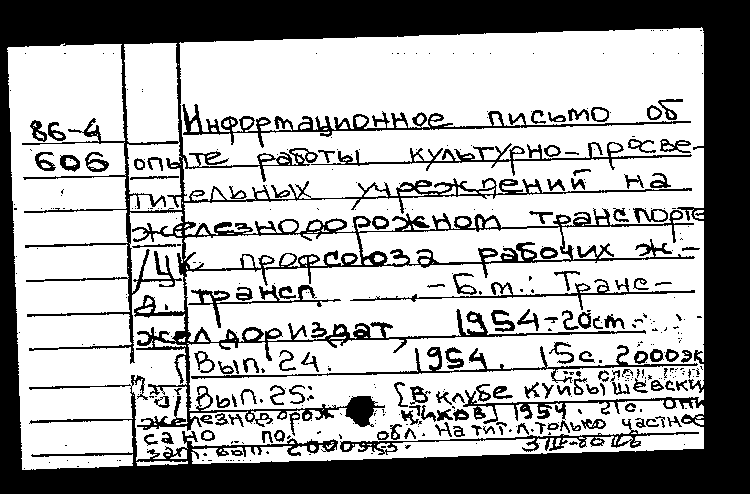 86-4
606
Информационное письмо об
опыте работы культурно-просве-
тительных учреждений на
железнодорожном транспорте
/ЦК профсоюза рабочих ж.-
д. трансп. - Б.м.: Транс-
желдориздат, 1954-20см.
Вып. 24. 1954. 15с. 2000эк
Вып. 25: [В клубе куйбышевски
железнодорож
1954. 21с. Опи
сано по обл. На тит.л. только частное
заг. вып. 2000экз.